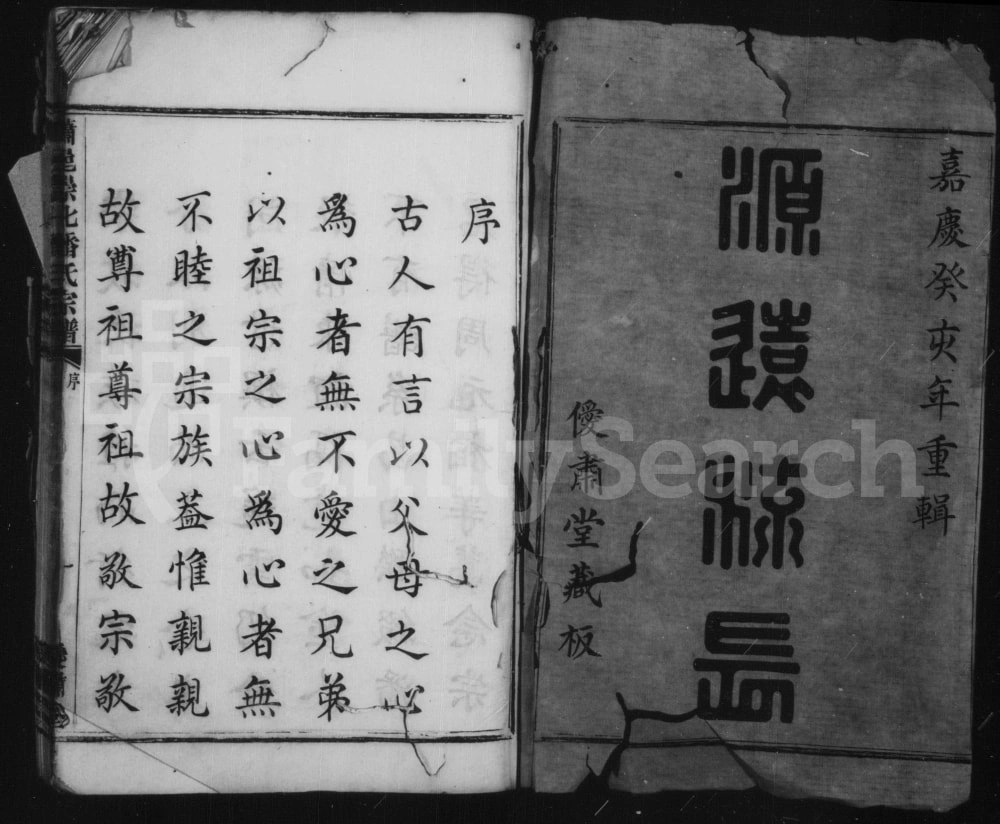 嘉慶癸亥年重輯
源遠流長
僾肅堂藏板
序
古人有言以父母之心
爲心者無不愛之兄弟
以祖宗之心爲心者無
不睦之宗族葢惟親親
故尊祖尊祖故敬宗敬
蕭邑崇化潘氏宗譜
序
一
FamilySearch